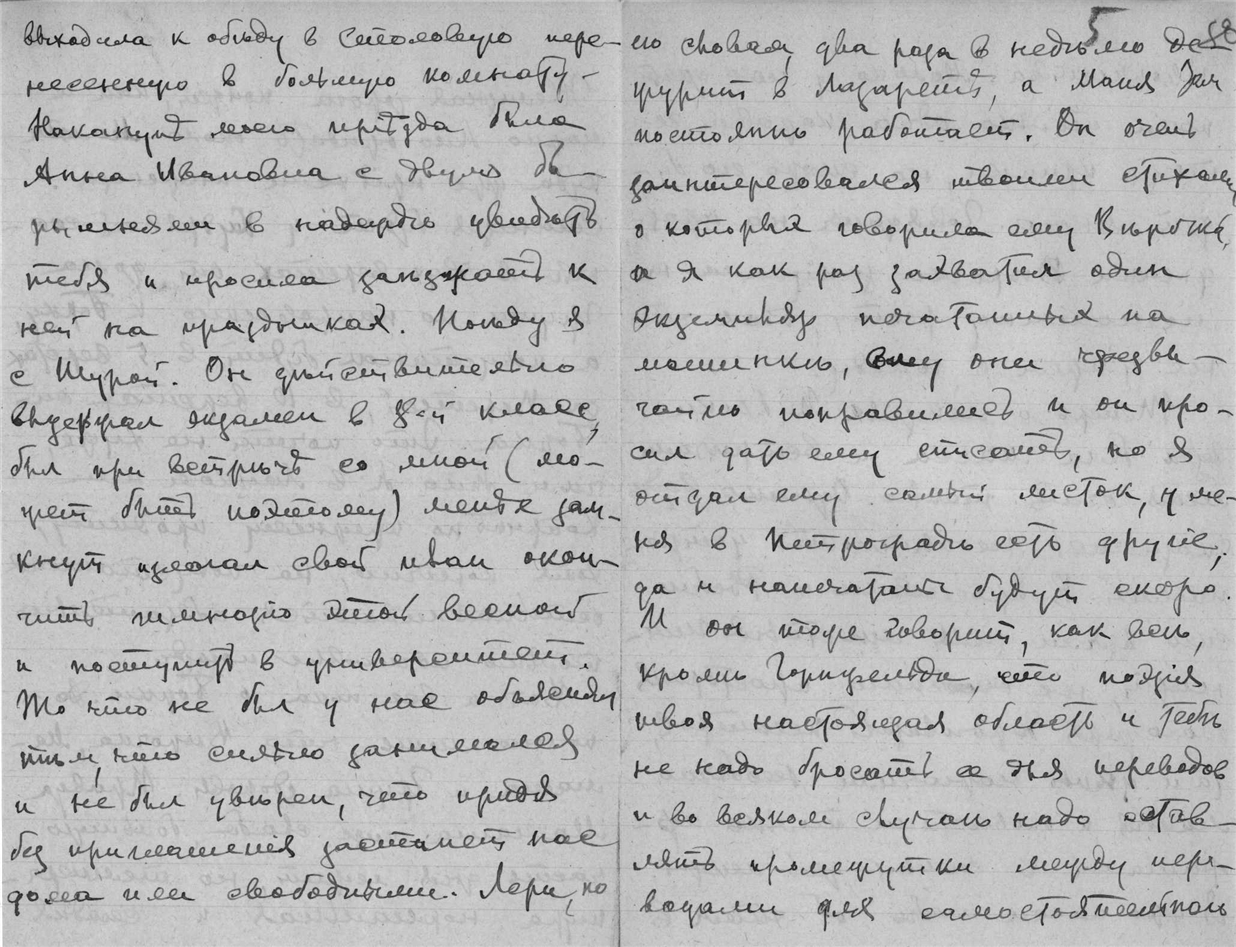 выходила к обѣду в столовую пере-
несенную в большую комнату.
Наканунѣ моего приѣзда была
Анна Ивановна с двумя ба-
рышнями в надеждѣ увидѣть
тебя и просила заѣзжать к
ней на праздниках. Поѣду я
с Шурой. Он дѣйствительно
выдержал экзамен в 8-й класс,
был при встрѣчѣ со мной (мо-
жет быть поэтому) менѣе зам-
кнут излагал свой план окон-
чить гимназiю этой весной
и поступить в университет.
То что не был у нас объяснял
тѣм, что сильно занимался
и не был увѣрен, что придя
без приглашения застанет нас
дома или свободными. Лери, по
5
ею словам, два раза в недѣлю де-
журит в Лазаретѣ, а Маня там
постоянно работает. Он очень
заинтересовался твоими стихами,
о которых говорила ему Вѣрочка,
а я как раз захватил один
экземпляр печатанных на
машинкѣ, ему они чрезвы-
чайно понравились и он про-
сил дать ему списать, но я
отдал ему самый листок, у ме-
ня в Петроградѣ есть другiе,
да и напечатаны будут скоро.
И он тоже говорит, как всѣ,
кромѣ Горнфельда, что поэзiя
твоя настоящая область и тебѣ
не надо бросать ее для переводов
и во всяком случаѣ надо остав-
лять промежутки между пере-
водами для самостоятельной